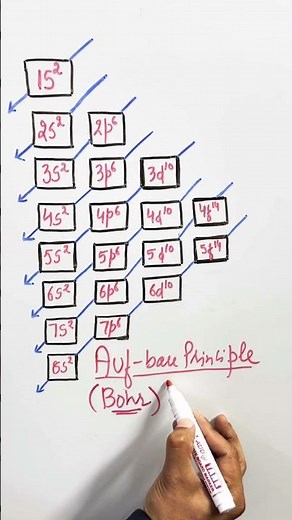 1s²
2s² 2p⁶
3s² 3p⁶ 3d¹⁰
4s² 4p⁶ 4d¹⁰ 4f¹⁴
5s² 5p⁶ 5d¹⁰ 5f¹⁴
6s² 6p⁶ 6d¹⁰
7s² 7p⁶
8s²
Auf-bau Principle
(Bohr)